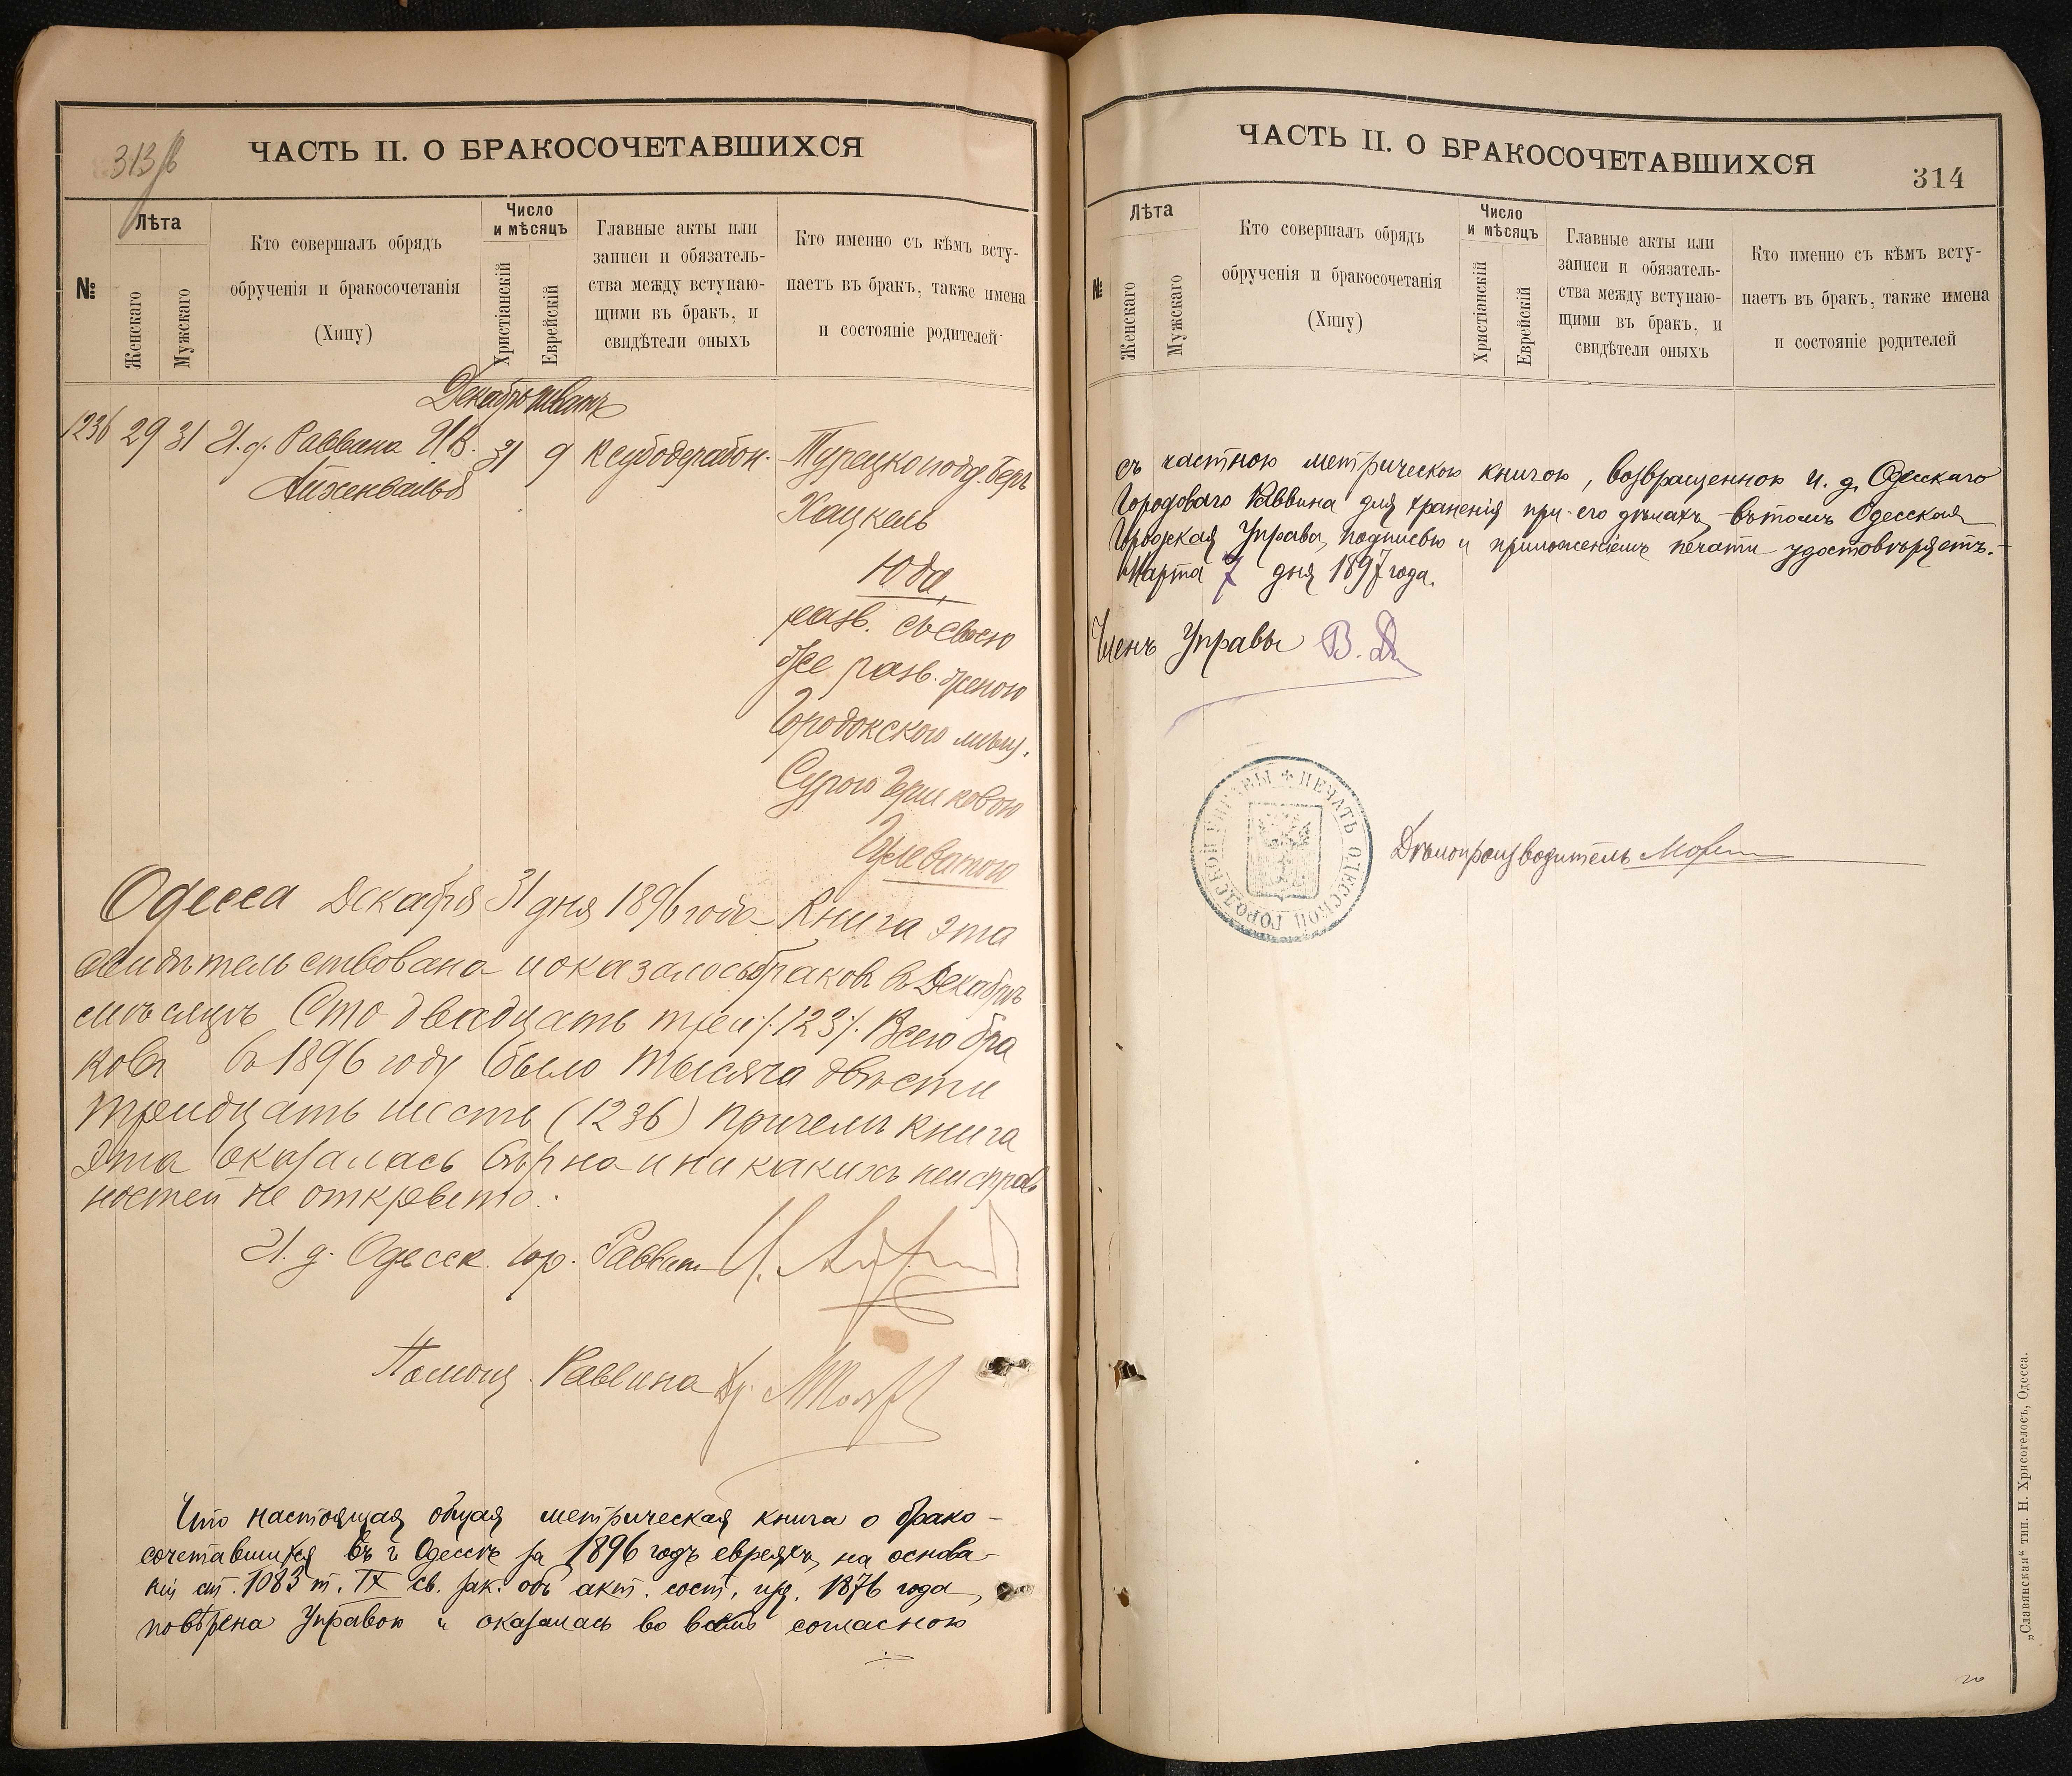 313
ЧАСТЬ II. О БРАКОСОЧЕТАВШИХСЯ
№
Лѣта
Женскаго
Мужскаго
Кто совершалъ обрядъ
обрученія и бракосочетанія
(Хипу)
Число
и мѣсяцъ
Христіанскій
Еврейскій
Главные акты или
записи и обязатель-
ства между вступаю-
щими въ бракъ, и
свидѣтели оныхъ
Кто именно съ кѣмъ всту-
паетъ въ бракъ, также имена
и состояніе родителей
Декабрь Шватъ
1236 29 31 И. д. Раввина И. В. 31 9 Ксубодерабон. Турецкоподд. Беръ
Айзенвальд
Хацкель
Юда,
разв. съ своею
же разв. женою
Городокскою мѣщ.
Сурою Гершковою
Одесса Декабря 31 дня 1896 года Книга эта
свидѣтельствована и оказалось браков в Декабрѣ
мѣсяцѣ Сто двадцать три /.123/. Всего бра
ков в 1896 году было тысяча двѣсти
тридцать шесть (1236) причем книга
эта оказалась вѣрна и никакихъ неисправ
ностей не открыто.
И. д. Одесск. гор. Раввин
Помощ. Раввина Др.
Что настоящая общая метрическая книга о брако-
сочетавшихся въ г. Одессѣ за 1896 годъ евреяхъ, на основа-
ніи ст. 1083 т. IX св. зак. объ акт. сост. изд. 1876 года,
повѣрена Управою и оказалась во всемъ согласною
ЧАСТЬ II. О БРАКОСОЧЕТАВШИХСЯ
314
№
Лѣта
Женскаго
Мужскаго
Кто совершалъ обрядъ
обрученія и бракосочетанія
(Хипу)
Число
и мѣсяцъ
Христіанскій
Еврейскій
Главные акты или
записи и обязатель-
ства между вступаю-
щими въ бракъ, и
свидѣтели оныхъ
Кто именно съ кѣмъ всту-
паетъ въ бракъ, также имена
и состояніе родителей
съ частною метрическою книгою, возвращенною И. д. Одесскаго
Городоваго Раввина для храненія при его дѣлахъ, въ томъ Одесская
Городская Управа, подписью и приложеніемъ печати удостовѣряетъ.
Марта 7 дня 1897 года.
Членъ Управы
ПЕЧАТЬ ОДЕССКОЙ ГОРОДСКОЙ УПРАВЫ
Дѣлопроизводитель
„Славянская“ тип. Н. Хрисогелосъ, Одесса.